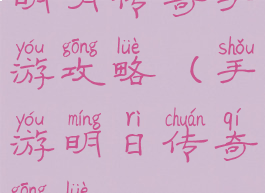 明月传奇手
yóu gōng lüè shǒu
游攻略（手
yóu míng rì chuán qí
游明日传奇
gōng lüè